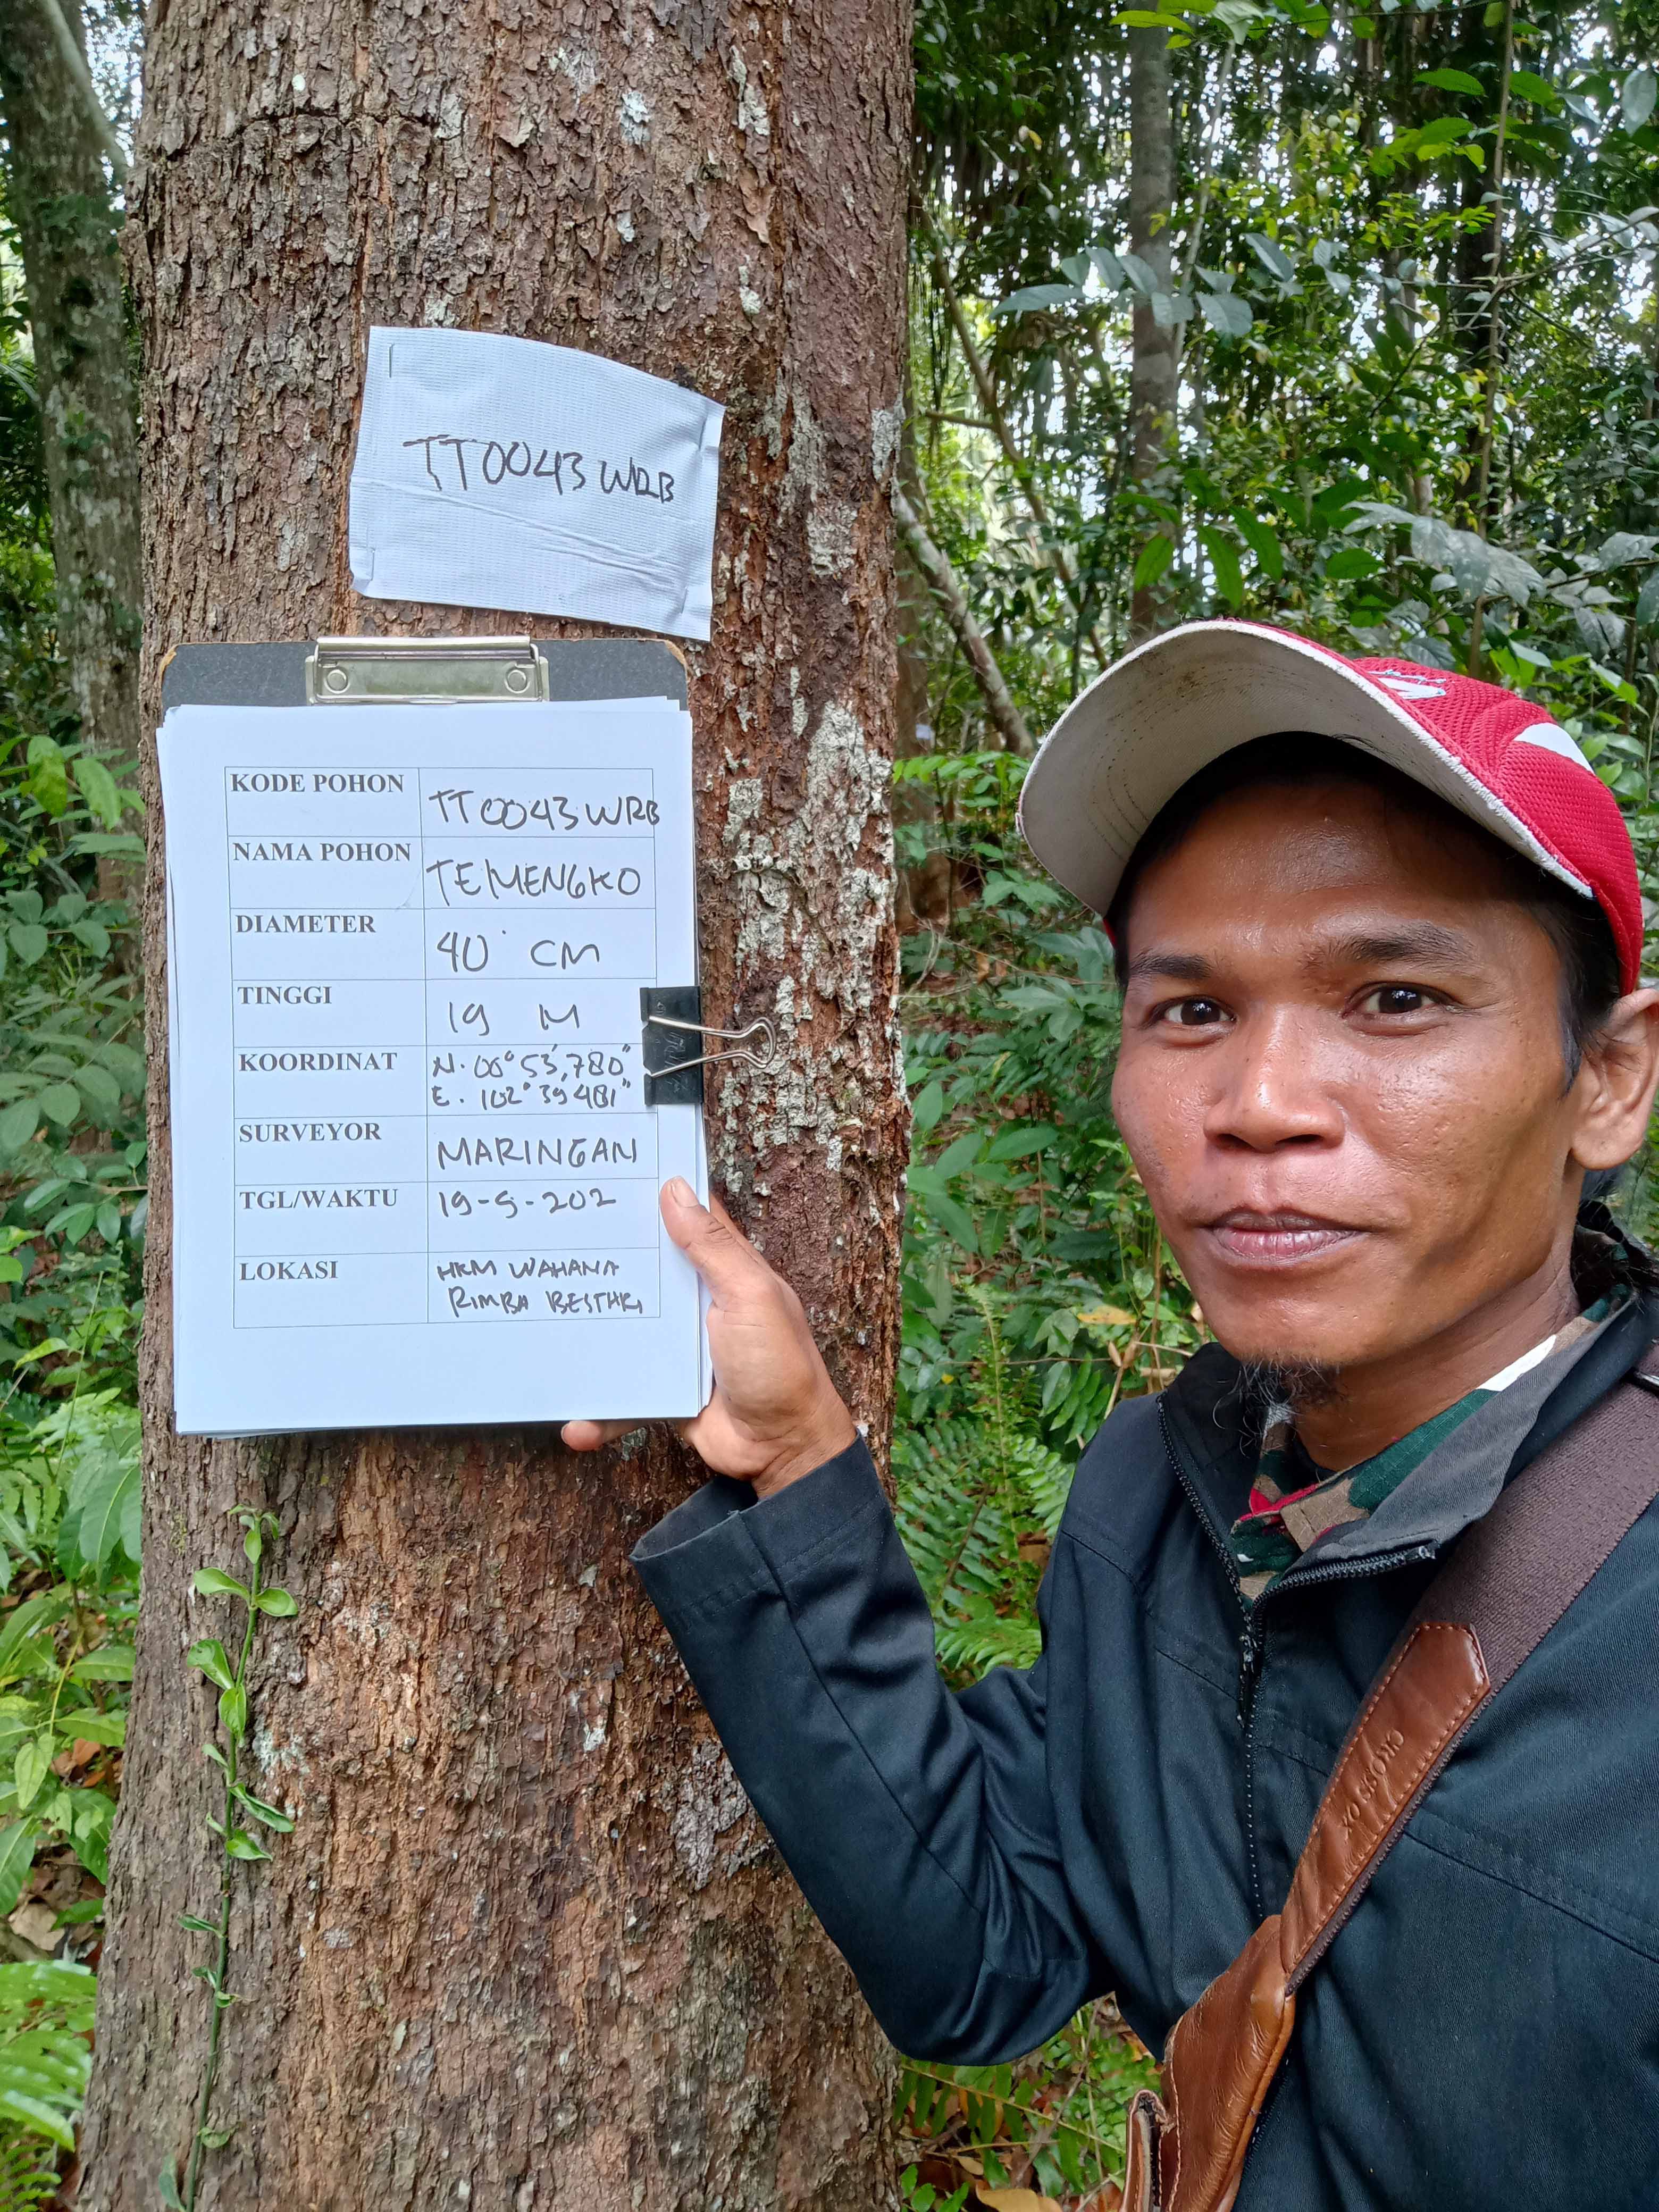 TT0043WRB
KODE POHON TT0043WRB
NAMA POHON TEMENGKO
DIAMETER 40 CM
TINGGI 19 M
KOORDINAT N. 00° 53,780"
E. 102° 39 481"
SURVEYOR MARINGAN
TGL/WAKTU 19-5-202
LOKASI HKM WAHANA
RIMBA BESTHRI